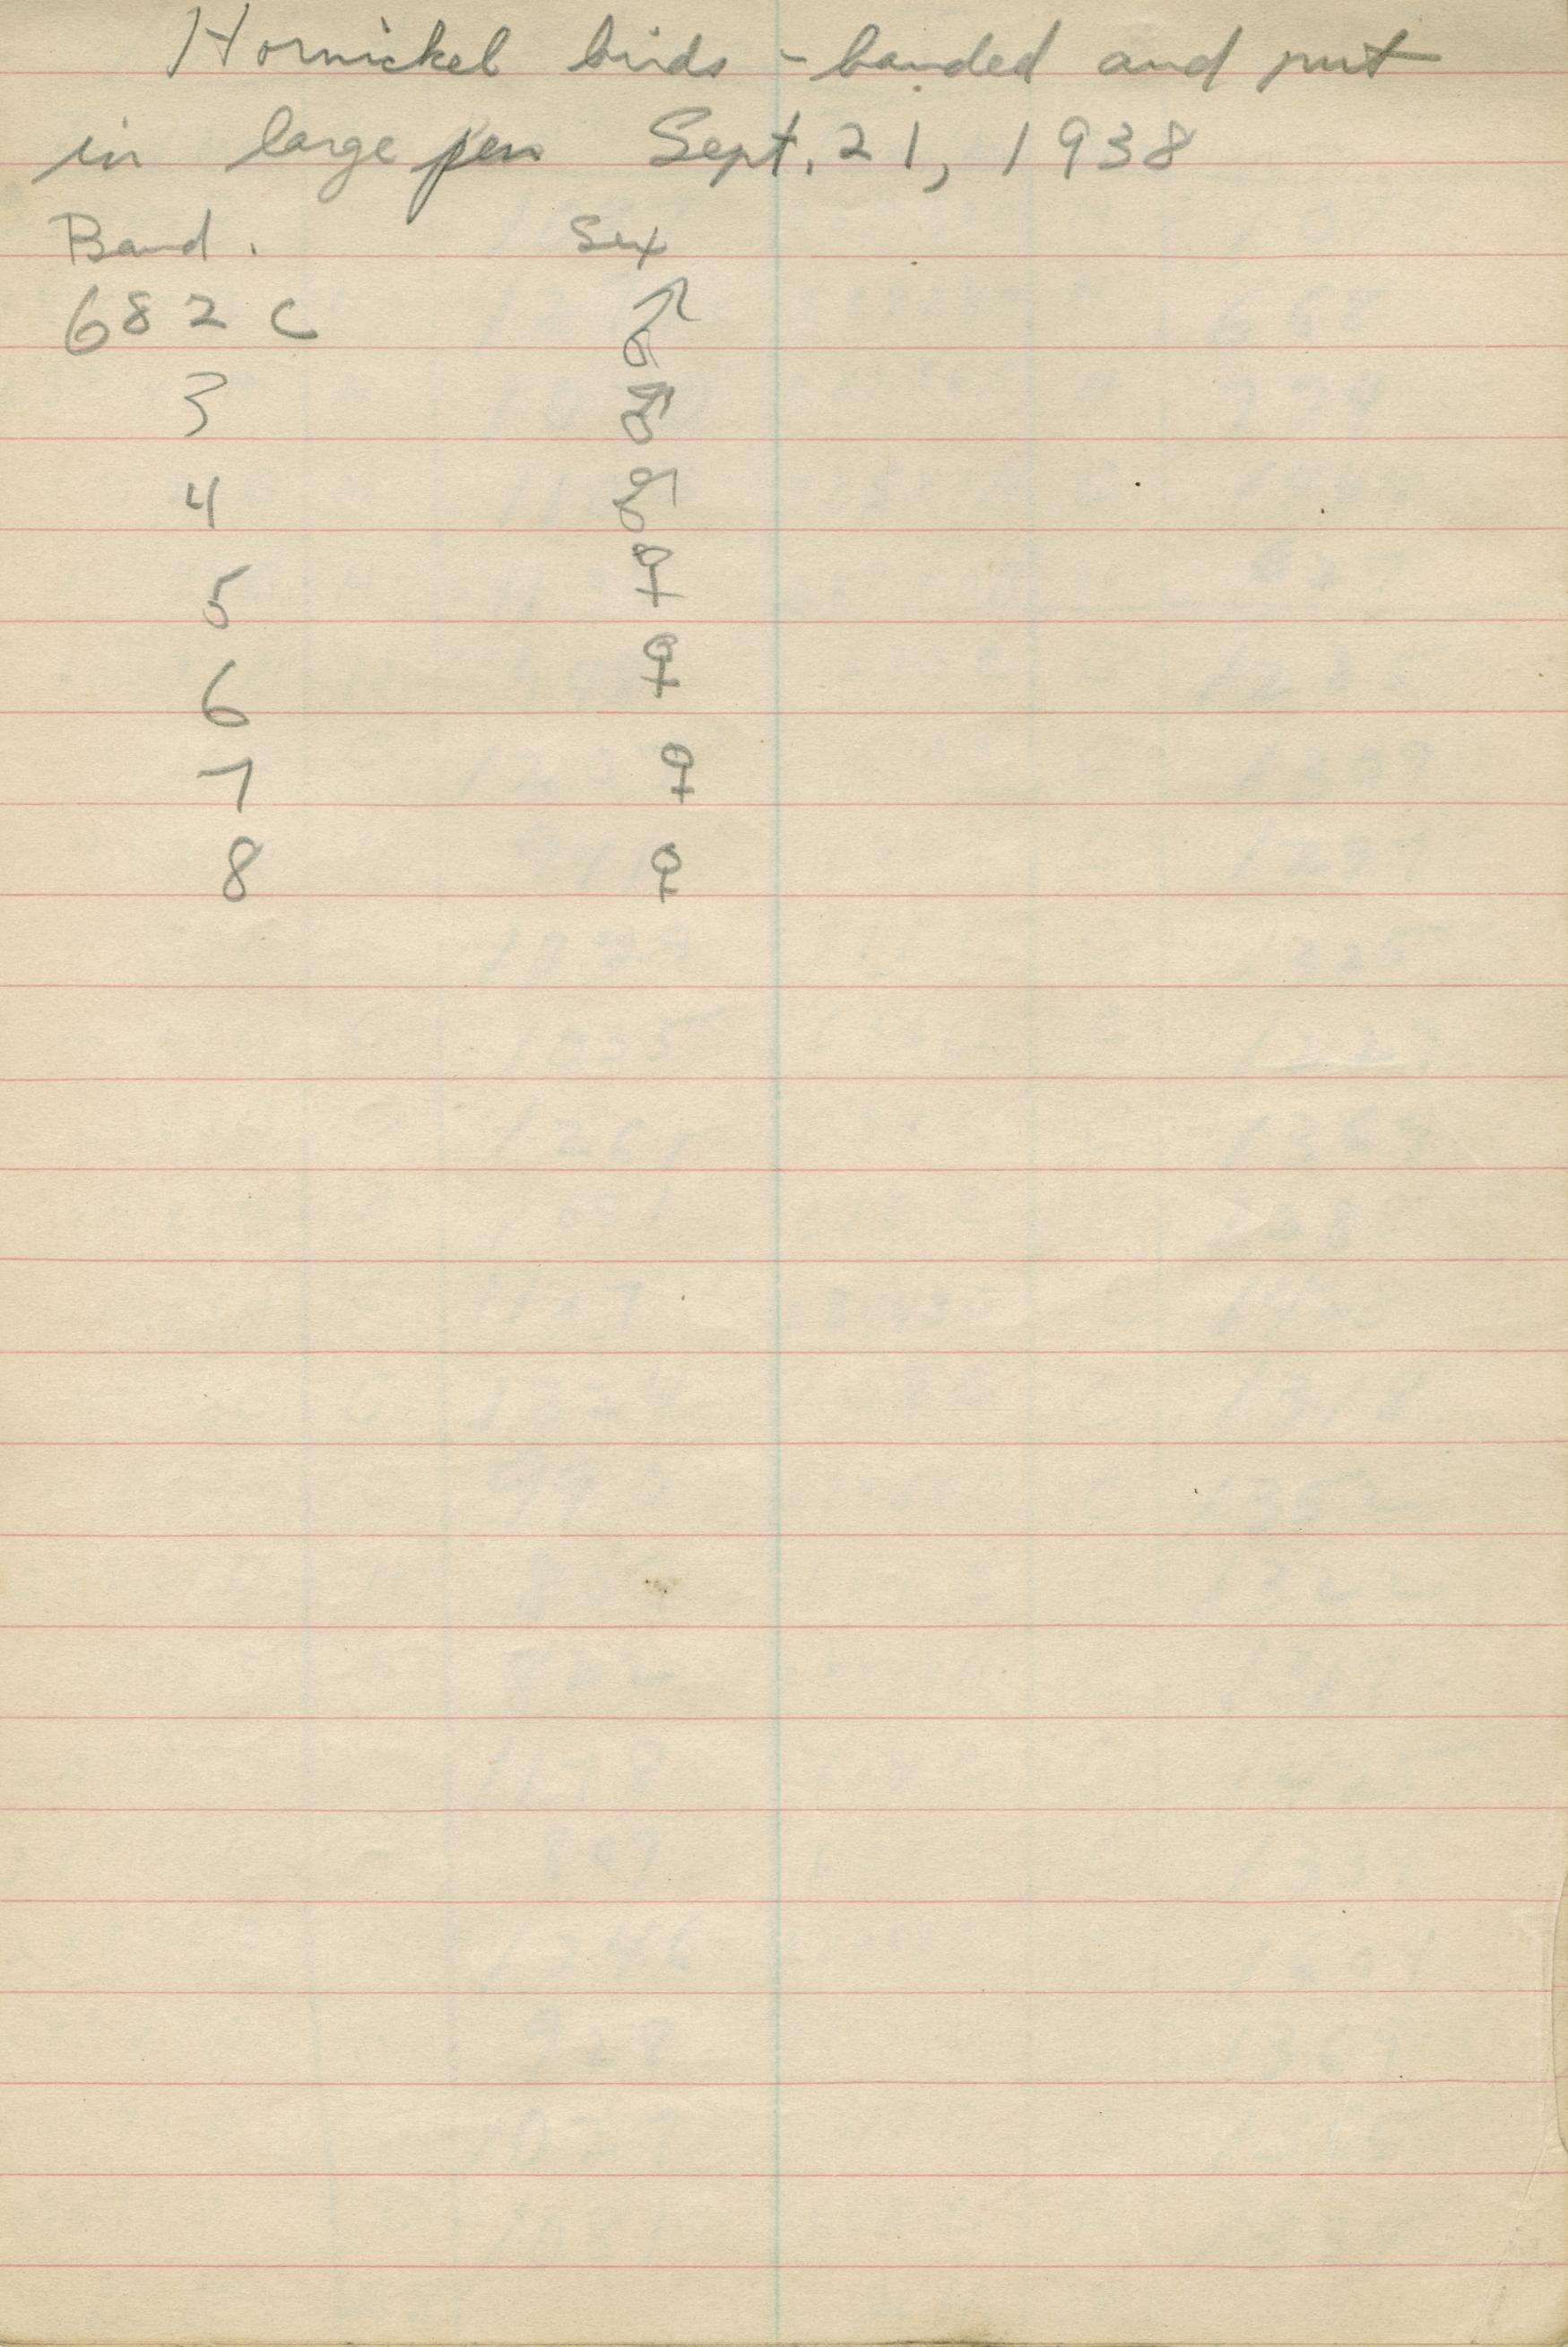 Hornickel birds - banded and put
in large pen Sept. 21, 1938
Band. Sex
682 C ♂
3 ♂
4 ♂
5 ♀
6 ♀
7 ♀
8 ♀